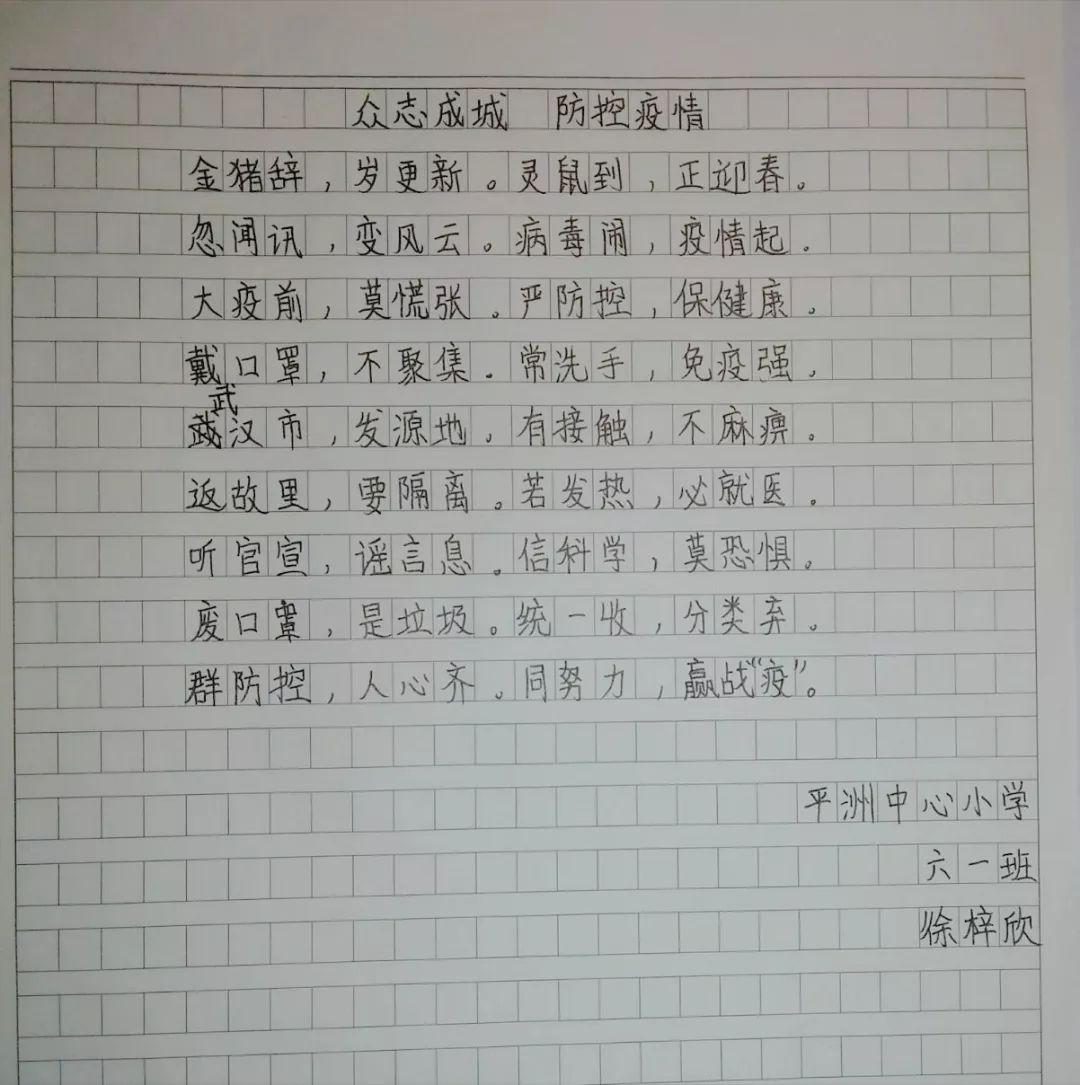 众志成城 防控疫情
金猪辞，岁更新。灵鼠到，正迎春。
忽闻讯，变风云。病毒闹，疫情起。
大疫前，莫慌张。严防控，保健康。
戴口罩，不聚集。常洗手，免疫强。
武
武汉市，发源地。有接触，不麻痹。
返故里，要隔离。若发热，必就医。
听官宣，谣言息。信科学，莫恐惧。
废口罩，是垃圾。统一收，分类弃。
群防控，人心齐。同努力，赢战“疫”。
平洲中心小学
六一班
徐梓欣